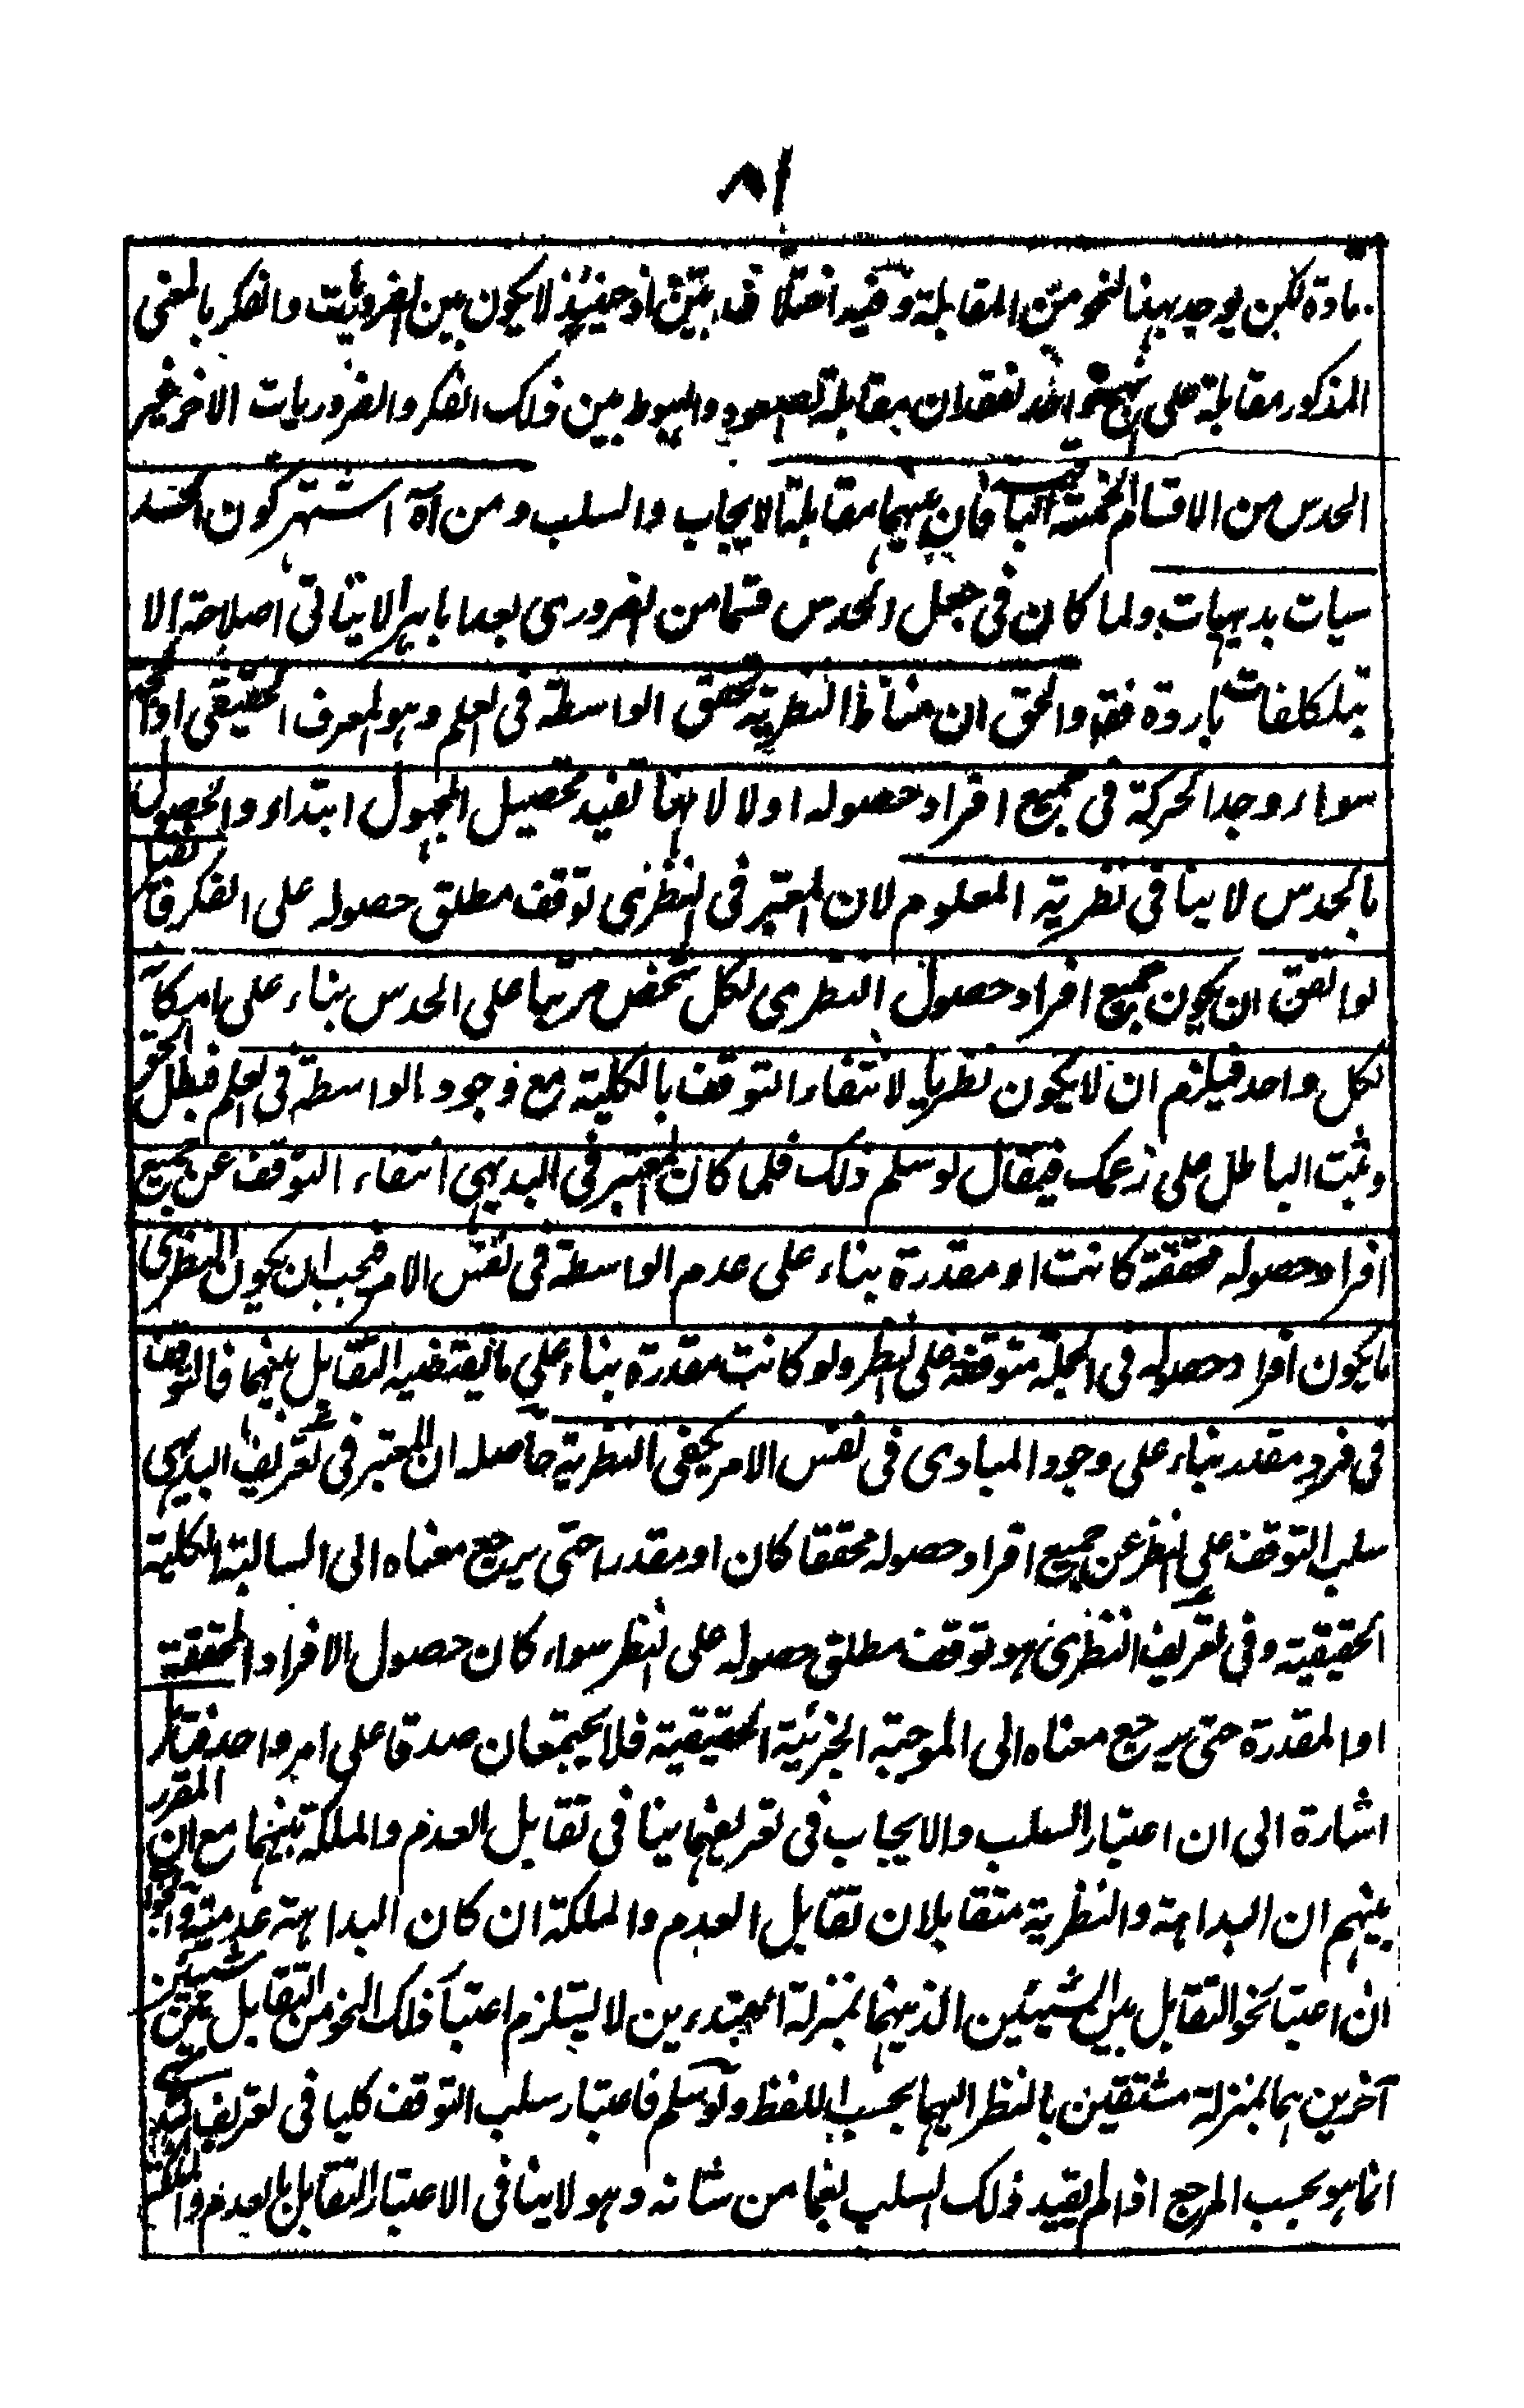 ٨١
مادة لكن يوجد بهذا النحو من المقابلة وفيه اختلاف بين اذ حينئذ لا يكون بين الضروريات والفكر بالمعنى
المذكور مقابلة على نهج واحد لفقدان مقابلة الصعود والهبوط بين ذلك الفكر والضروريات الاخر غير
الحدس من الاقسام الخمسة الباقية فان بينهما مقابلة الايجاب والسلب ومن آه اشتهر كون الحد
سيات بديهيات ولما كان في جعل الحدس قسما من الضروري بعدا باهرا لا يتاتى اصلاحه الا
بتكلفات باردة فقد والحق ان مناط النظرية تحقق الواسطة في العلم وهو المعرف الحقيقي او الحجة
سواء وجد الحركة في جميع افراد حصوله اولا لانها تفيد تحصيل المجهول ابتداء والحصول
بالحدس لا ينافي نظرية المعلوم لان المعتبر في النظري توقف مطلق حصوله على الفكر فايقال
لو اتفق ان يكون جميع افراد حصول النظري لكل شخص مرتبا على الحدس بناء على امكانه
لكل واحد فيلزم ان لا يكون نظريا لانتفاء التوقف بالكلية مع وجود الواسطة في العلم فبطل الحق
وثبت الباطل على زعمك فيقال لو سلم ذلك فلما كان المعتبر في البديهي انتفاء التوقف عن جميع
افراد حصوله محققة كانت او مقدرة بناء على عدم الواسطة في نفس الامر فيجب ان يكون النظري
ما يكون افراد حصوله في الجملة متوقفة على النظر ولو كانت مقدرة بناء على ما يقتضيه التقابل بينهما فالتوقف
في فرد مقدر بناء على وجود المبادي في نفس الامر يكفي النظرية حاصله ان المعتبر في تعريف البديهي
سلب التوقف على النظر عن جميع افراد حصوله محققا كان او مقدرا حتى يرجع معناه الى السالبة الكلية
الحقيقية وفي تعريف النظري هو توقف مطلق حصوله على النظر سواء كان حصول الافراد المحققة
او المقدرة حتى يرجع معناه الى الموجبة الجزئية الحقيقية فلا يجتمعان صدقا على امر واحد فتامل
اشارة الى ان اعتبار السلب والايجاب في تعريفهما ينافي تقابل العدم والملكة بينهما مع ان المقرر
بينهم ان البداهة والنظرية متقابلان تقابل العدم والملكة ان كان البداهة عدمية
ان اعتبار نحو التقابل بين الشيئين الذينهما بمنزلة المبتدءين لا يستلزم اعتبار ذلك النحو من التقابل بين شيئين
آخرين هما بمنزلة مشتقين بالنظر اليهما بحسب اللفظ ولو سلم فاعتبار سلب التوقف كليا في تعريف
انما هو بحسب المرجع اذ الم يقيد ذلك السلب لغما من شانه وهو لا ينافي الاعتبار التقابل بالعدم والملكة